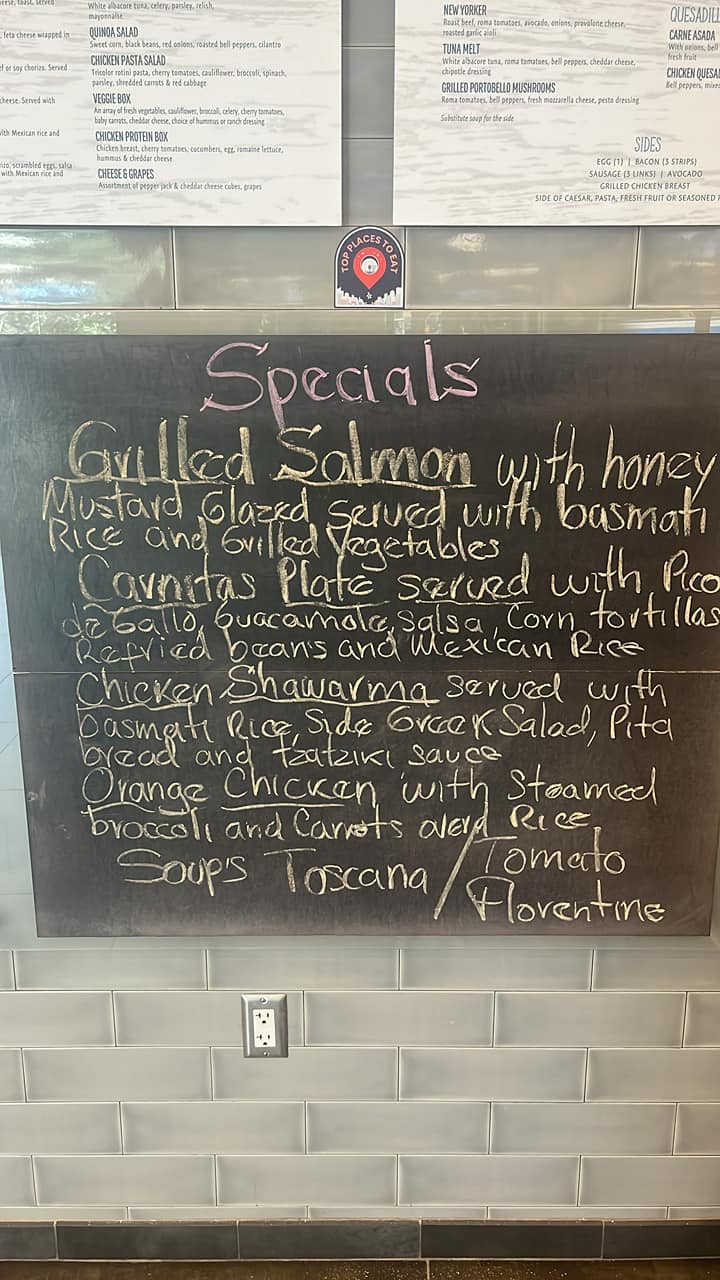 White albacore tuna, celery, parsley, relish,
mayonnaise.
QUINOA SALAD
Sweet corn, black beans, red onions, roasted bell peppers, cilantro
CHICKEN PASTA SALAD
Tricolor rotini pasta, cherry tomatoes, cauliflower, broccoli, spinach,
parsley, shredded carrots & red cabbage
VEGGIE BOX
An array of fresh vegetables, cauliflower, broccoli, celery, cherry tomatoes,
baby carrots, cheddar cheese, choice of hummus or ranch dressing
CHICKEN PROTEIN BOX
Chicken breast, cherry tomatoes, cucumbers, egg, romaine lettuce,
hummus & cheddar cheese
CHEESE & GRAPES
Assortment of pepper jack & cheddar cheese cubes, grapes
feta cheese wrapped in
or soy chorizo. Served
cheese. Served with
with Mexican rice and
scrambled eggs, salsa
with Mexican rice and
NEW YORKER
Roast beef, roma tomatoes, avocado, onions, provolone cheese,
roasted garlic aioli
TUNA MELT
White albacore tuna, roma tomatoes, bell peppers, cheddar cheese,
chipotle dressing
GRILLED PORTOBELLO MUSHROOMS
Roma tomatoes, bell peppers, fresh mozzarella cheese, pesto dressing
Substitute soup for the side
SIDES
EGG (1) | BACON (3 STRIPS)
SAUSAGE (3 LINKS) | AVOCADO
GRILLED CHICKEN BREAST
SIDE OF CAESAR, PASTA, FRESH FRUIT OR SEASONED
QUESADILL
CARNE ASADA
With onions, bell
fresh fruit
CHICKEN QUESA
Bell peppers, mixe
TOP PLACES TO EAT
Specials
Grilled Salmon with honey
Mustard Glazed served with basmati
Rice and Grilled Vegetables
Carnitas Plate served with Pico
de Gallo, Guacamole, Salsa, Corn tortillas
Refried beans and Mexican Rice
Chicken Shawarma served with
basmati Rice, Side Greek Salad, Pita
bread and tzatziki sauce
Orange Chicken with Steamed
broccoli and Carrots over Rice
Soup's Toscana / Tomato
Florentine